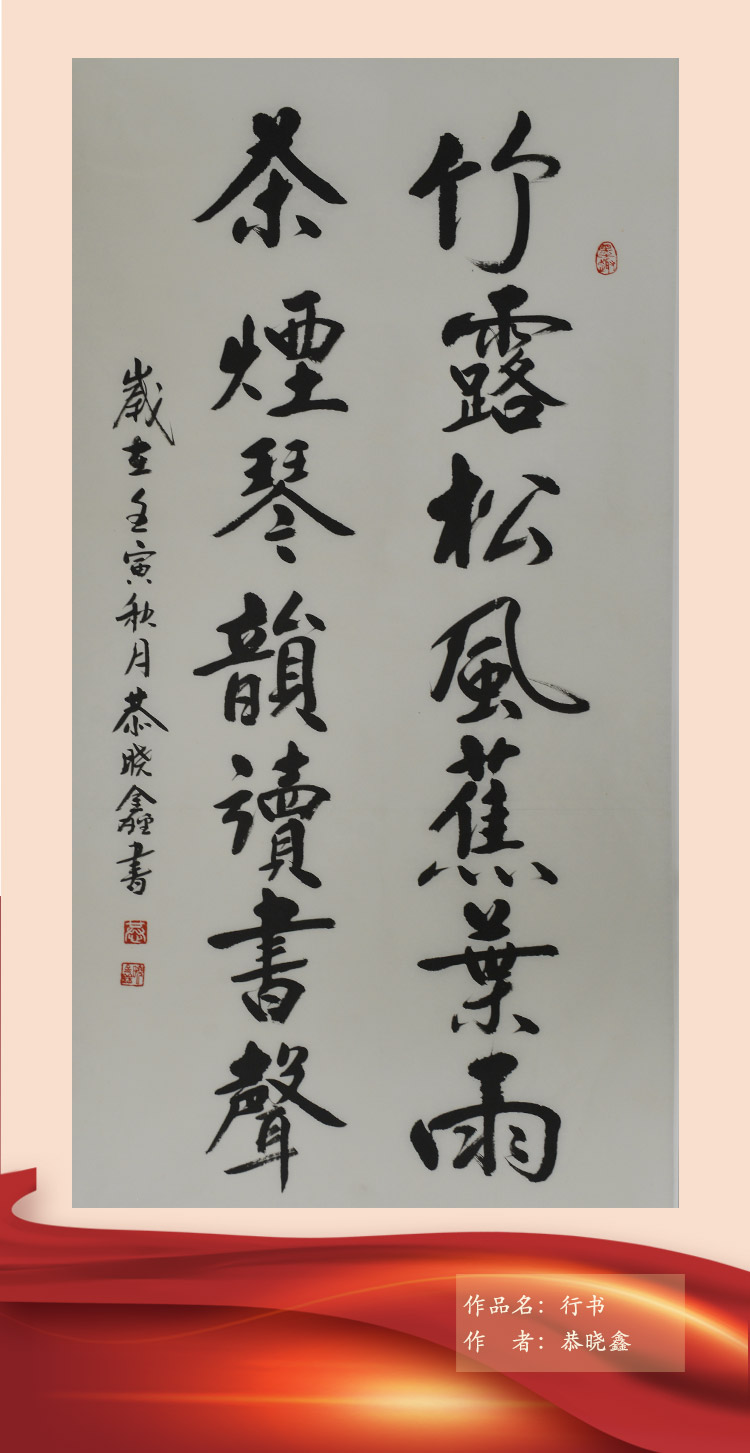 竹露松風蕉葉雨
茶煙琴韻讀書聲
歲在壬寅秋月恭晓鑫書
作品名：行书
作　者：恭晓鑫